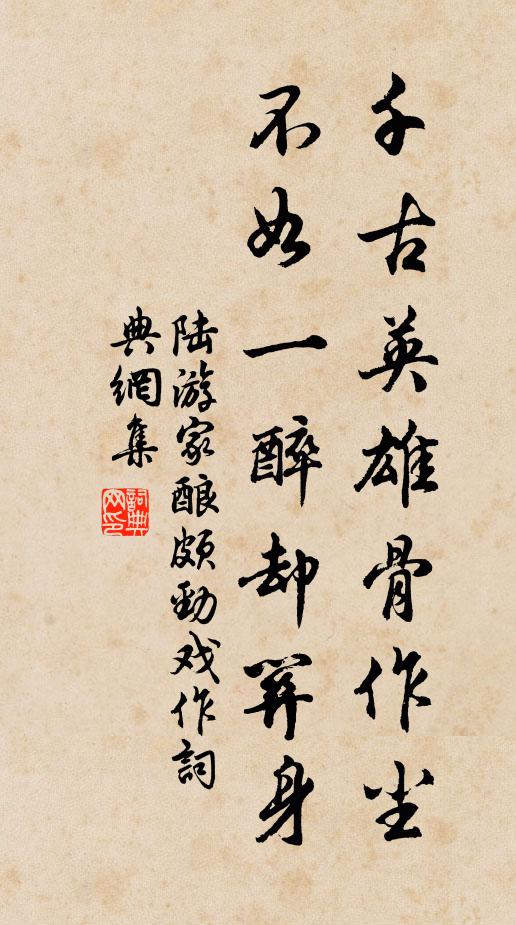 千古英雄骨作尘
不如一醉却关身
陆游家酿颇勁戏作詞
典網集
詞典
网印